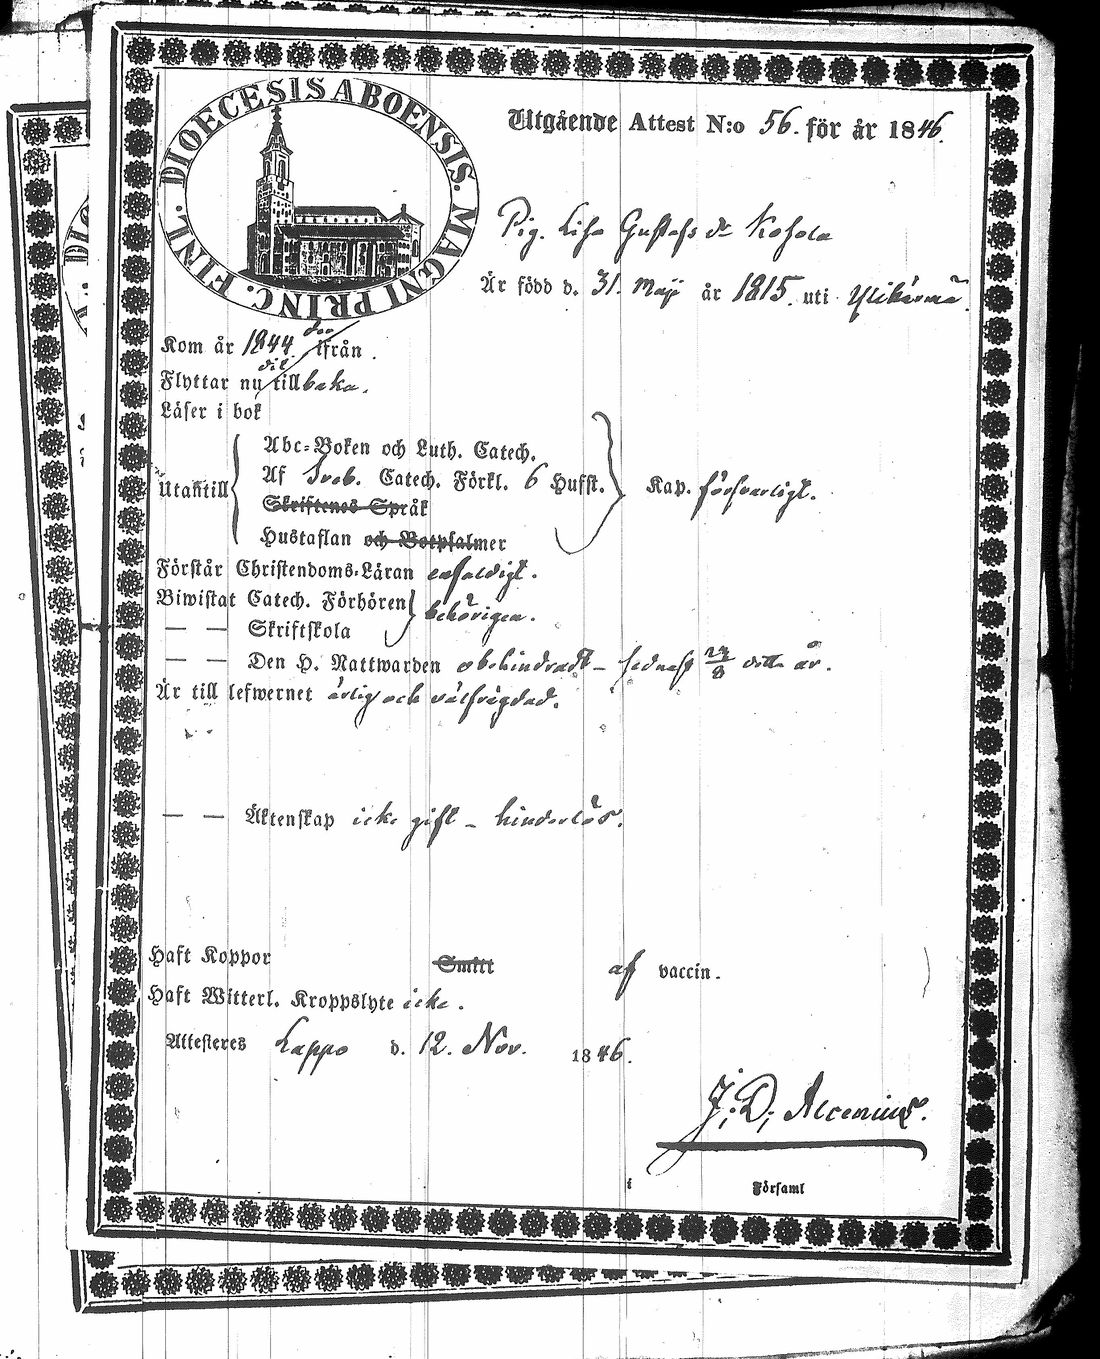 DIOECESIS ABOENSIS. MAGNI PRINC. FINL.
Utgående Attest N:o 56. för år 1846.
Pig. Lisa Gustafs dr Kosola
Är född d. 31. Maji år 1815. uti Ylikärmä.
der
Kom år 1844 ifrån.
dit
Flyttar nu tillbaka.
Läser i bok
Abc=Boken och Luth. Catech.
Utantill Af Sveb. Catech. Förkl. 6 Hufst. Kap. försvarligt.
Skriftenes Språk
Hustaflan och Botpsalmer
Förstår Christendoms=Läran enfaldigt.
Biwistat Catech. Förhören behörigen.
— — Skriftskola
— — Den H. Nattwarden obehindradt – sednast 23/8 detta år.
Är till lefwernet ärlig och välfrägdad.
— — Äktenskap icke gift – hinderlös.
Haft Koppor Smitt af vaccin.
Haft Witterl. Kroppslyte icke.
Attesteres Lappo d. 12. Nov. 1846.
J. D. Alcenius.
i Församl